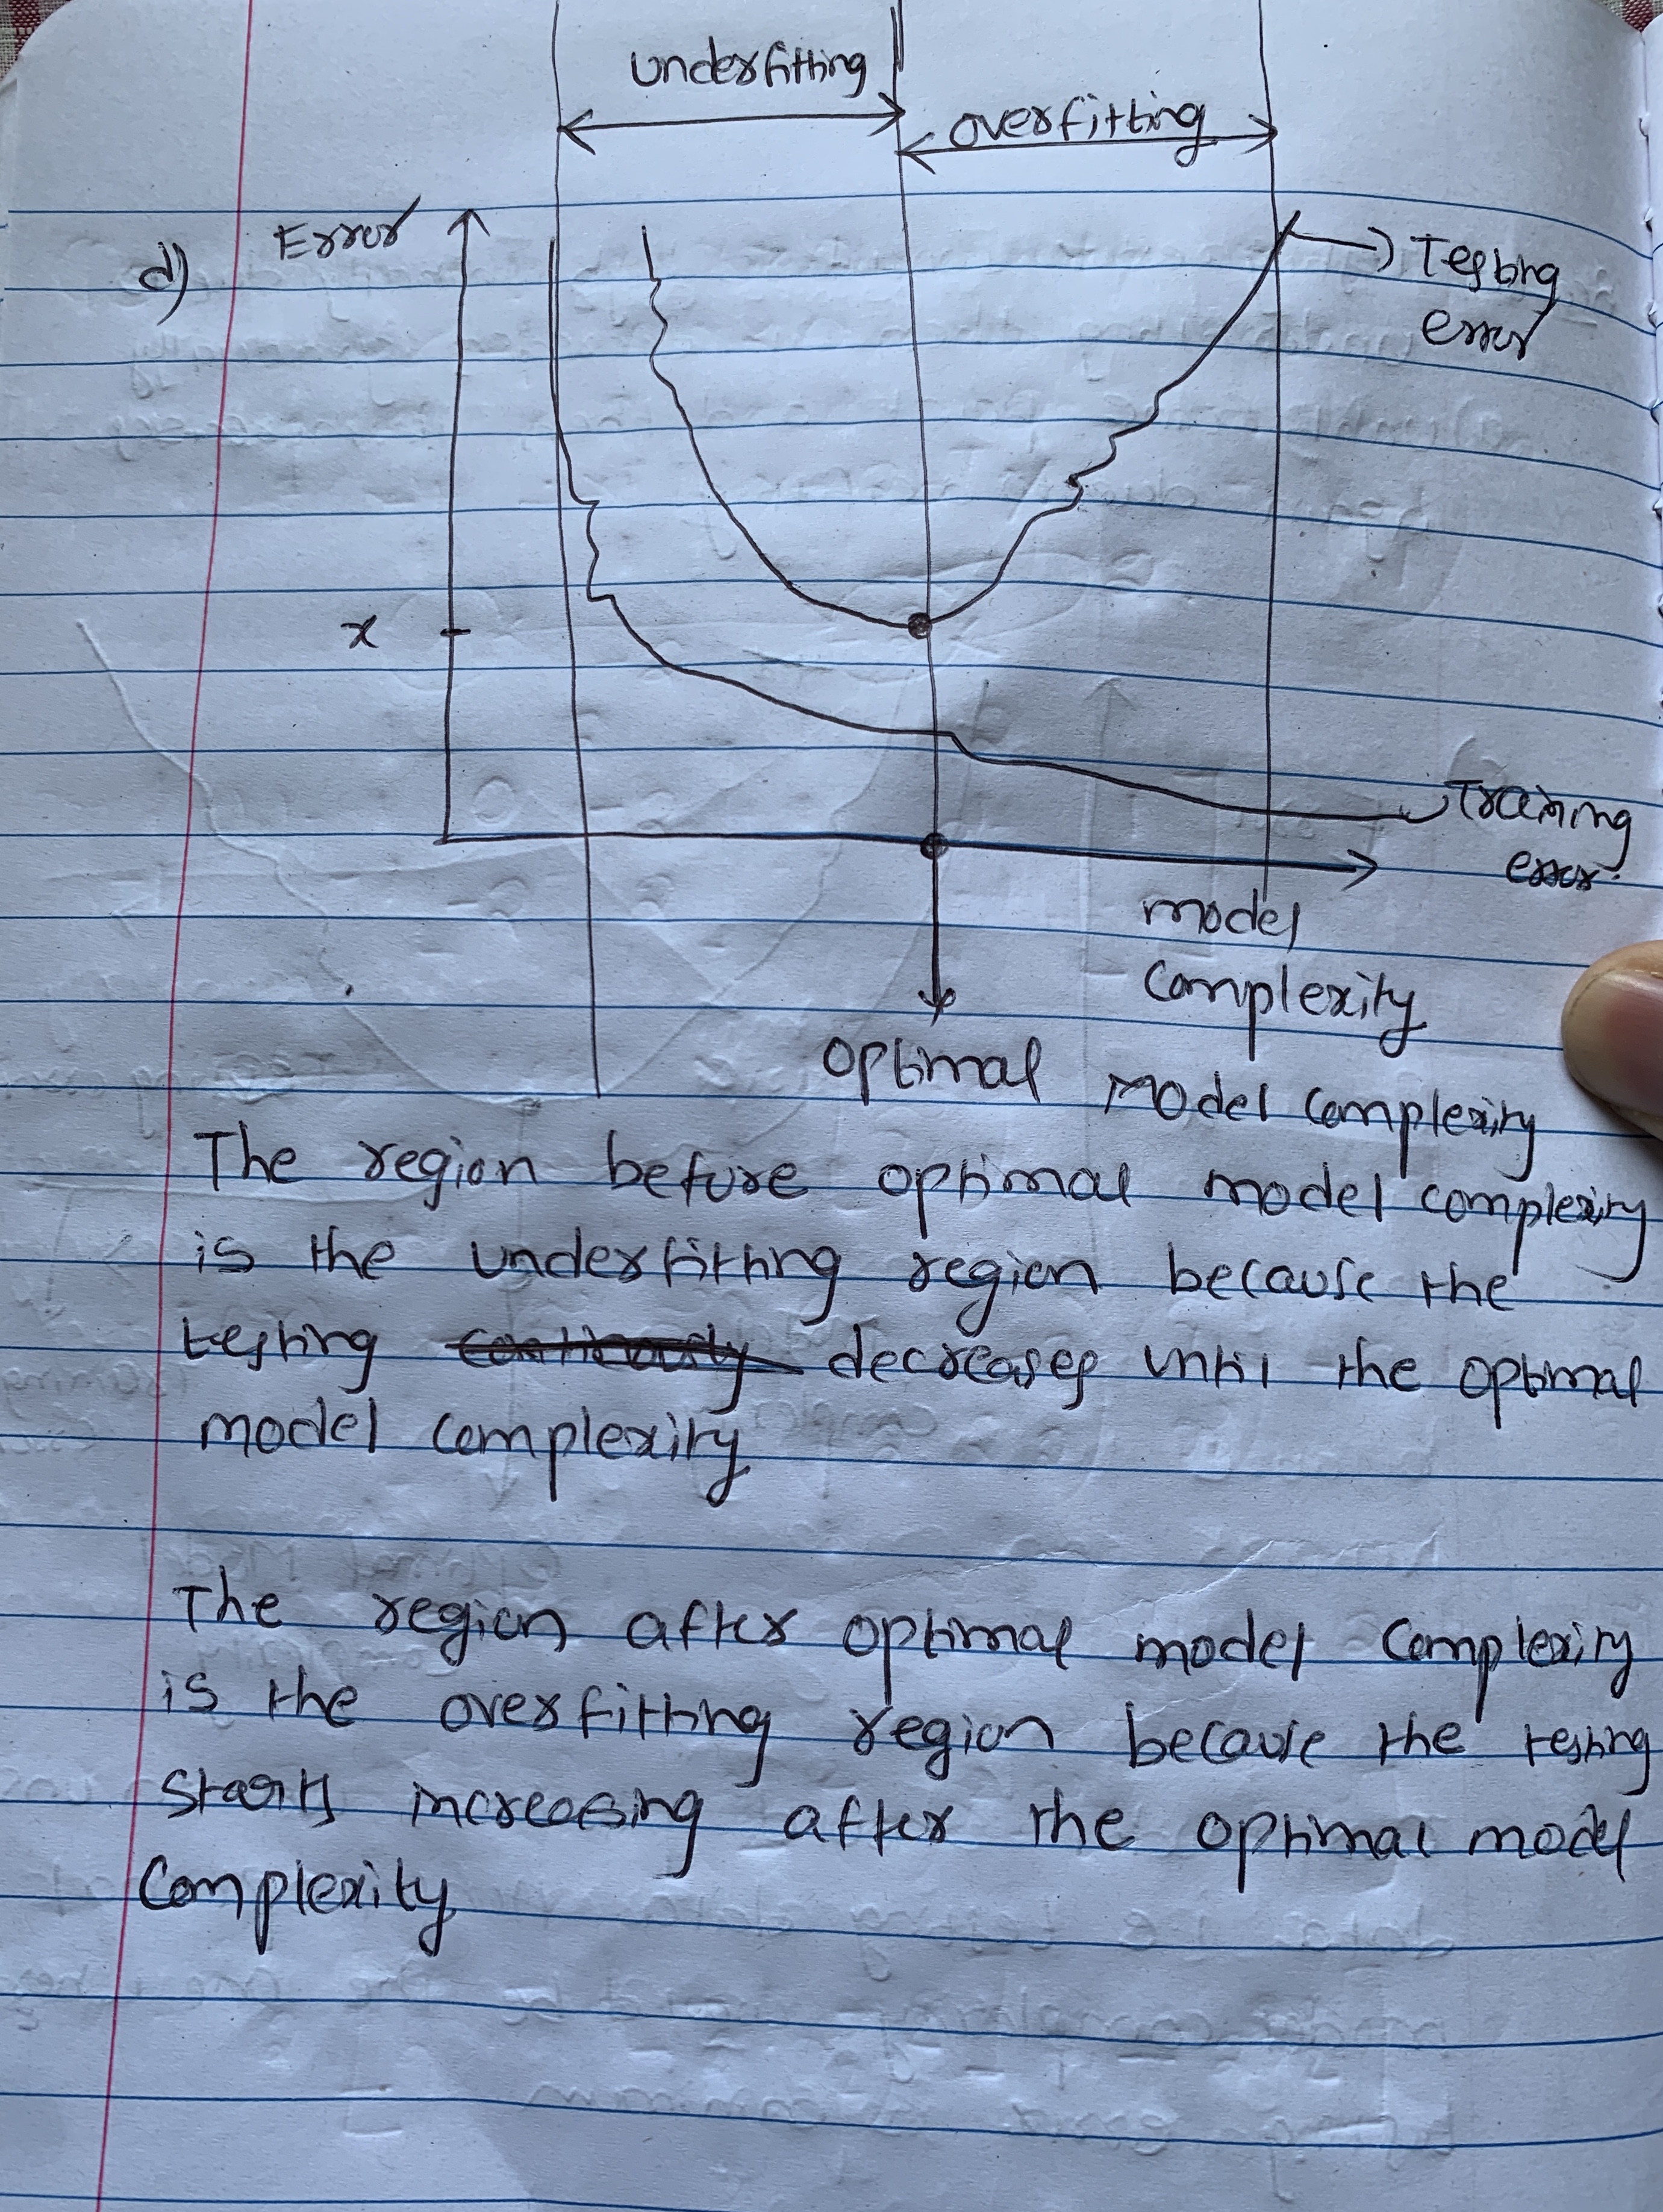 underfitting
overfitting
d)
Error
Testing
error
x
Training
error.
model
complexity
optimal model complexity
The region before optimal model complexity
is the underfitting region because the
testing decreases until the optimal
model complexity
The region after optimal model complexity
is the overfitting region because the testing
starts increasing after the optimal model
complexity